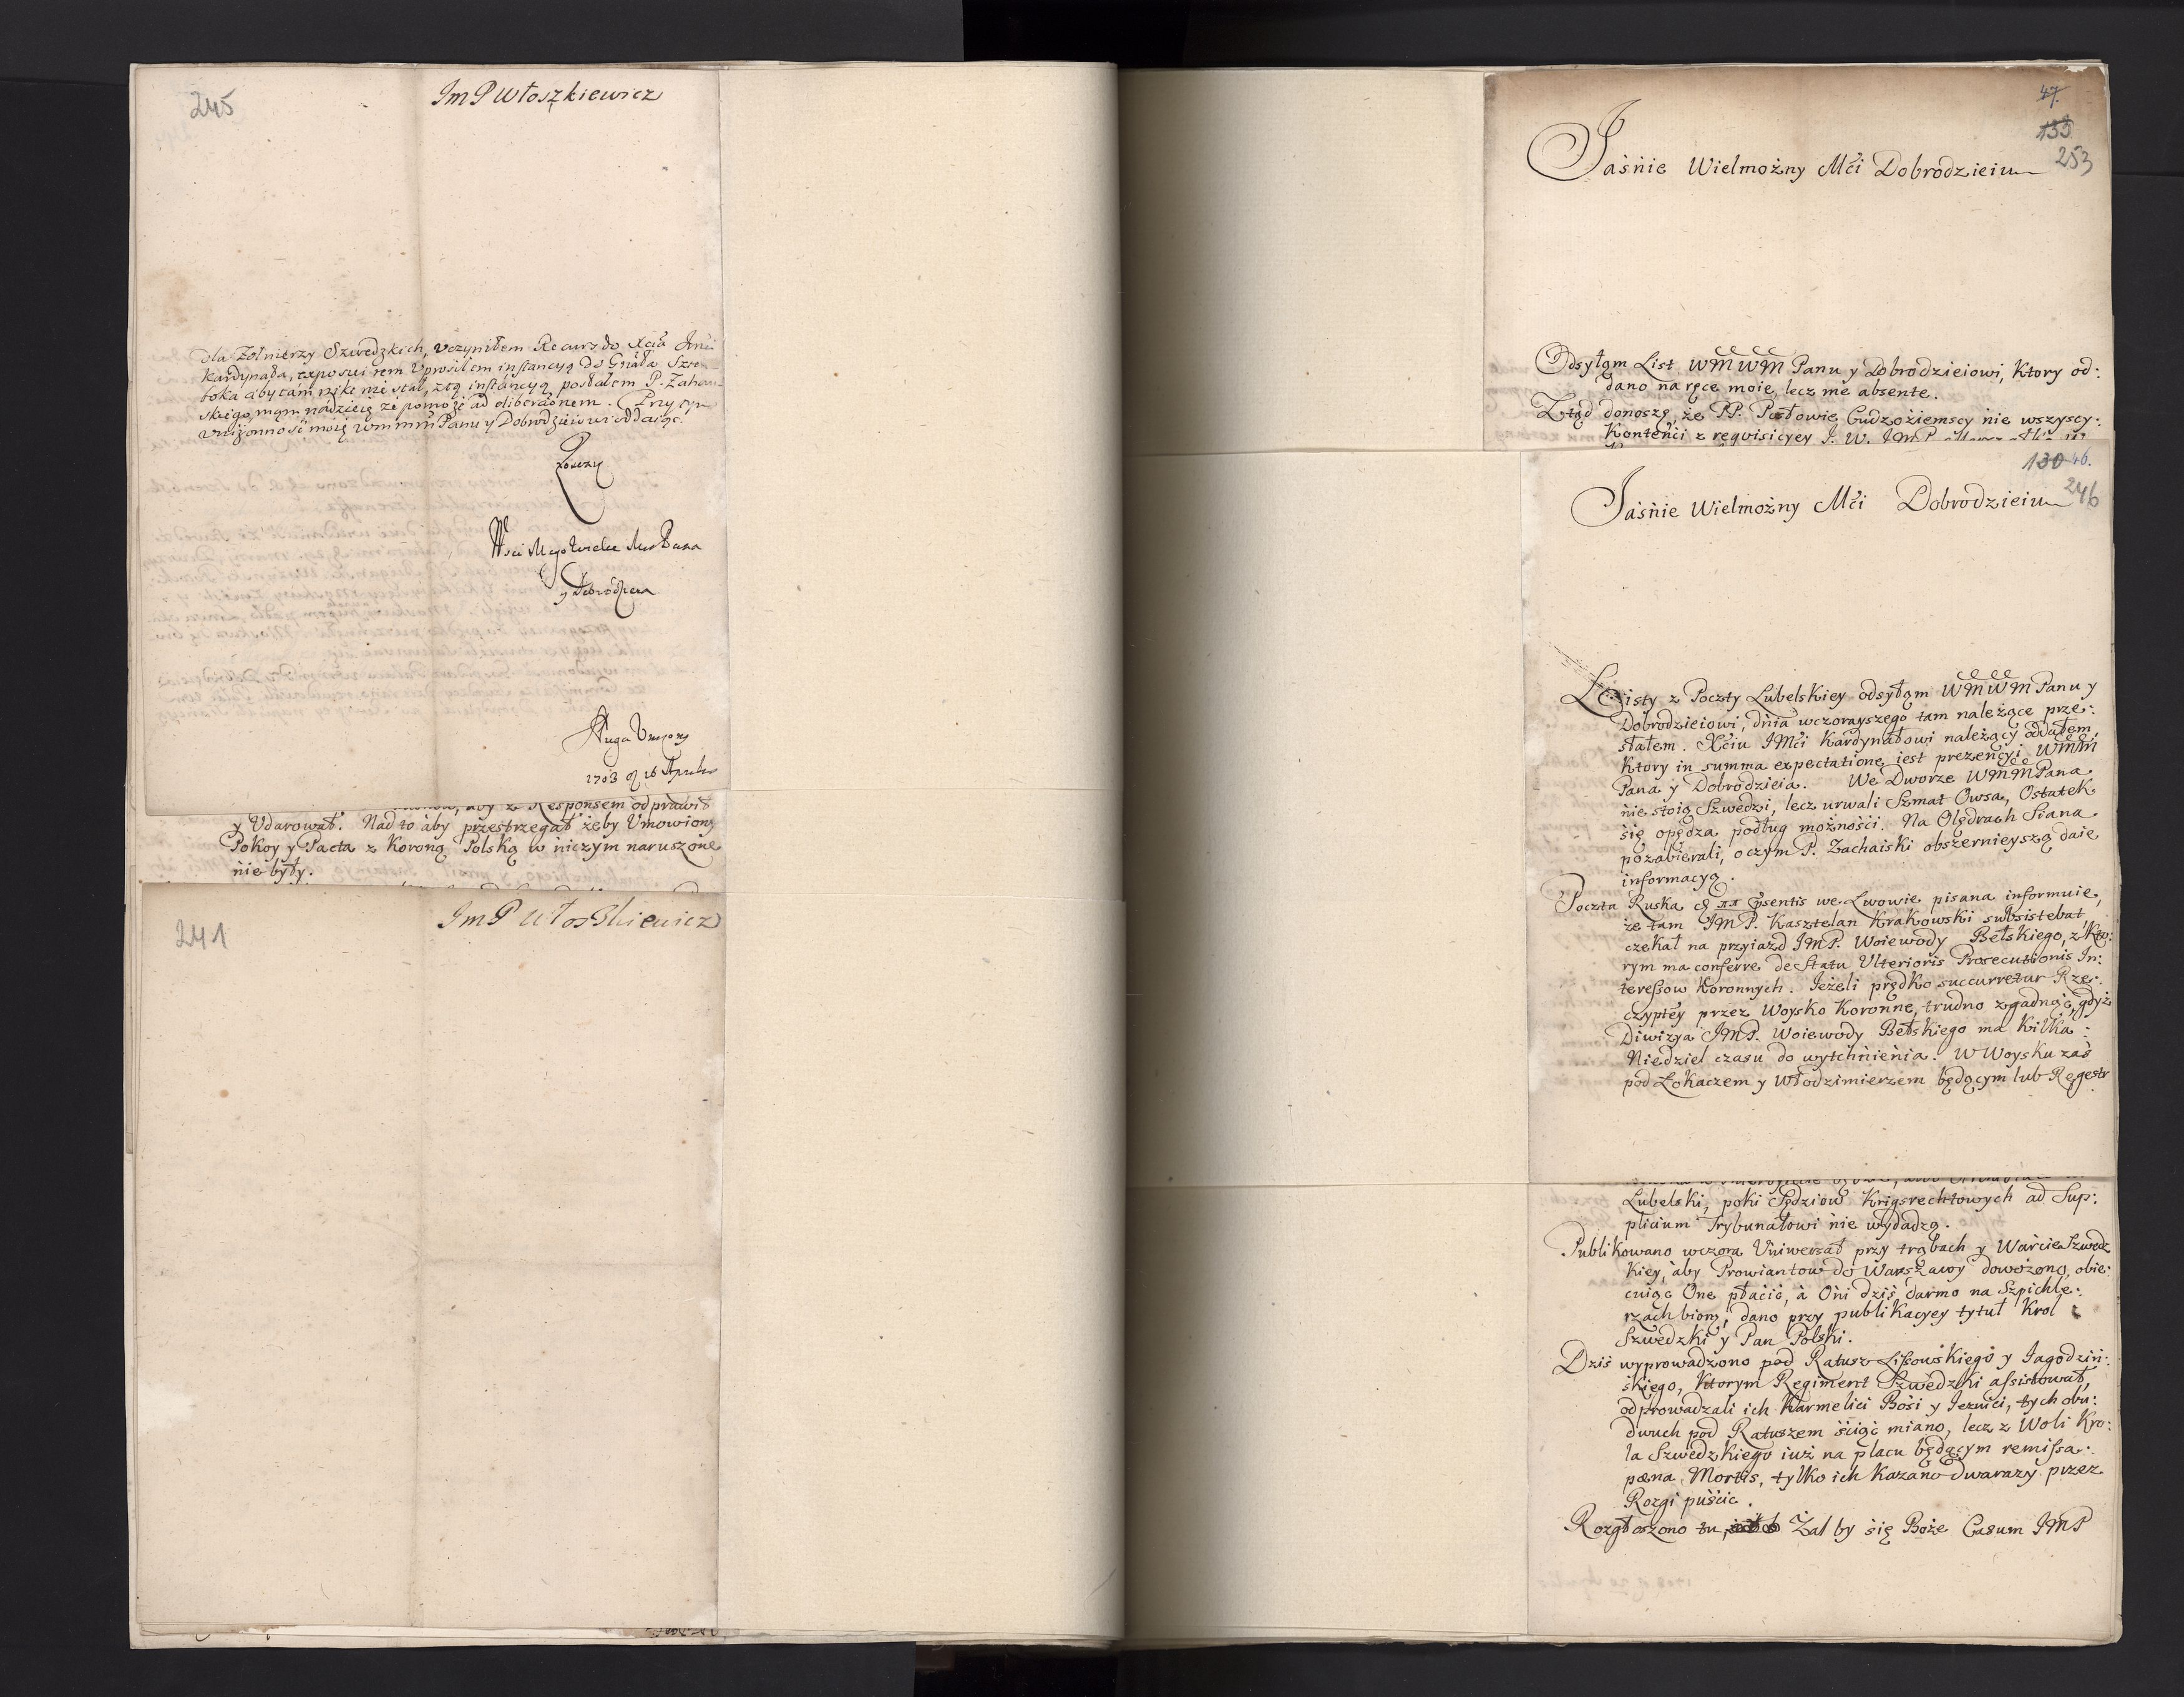 245
ImP Włoszkiewicz
dla Zołnierzy Szwedzkich, Uczyniłem Recurs do Xcia Jmci
Kardynała, exposui rem Uprosiłem instancyą do Gnała Szten
boka aby tam nikt nie stał, z tą instancyą posłałem P. Zahay
skiego mąm nadzieię ze pomoże ad liberaōnem. Przy tym
unizonność moię WmMM Panu y Dobrodzieiowi oddaiąc.
Wści Mego Wielce Mm Pana
y Dobrodzieia
Sługa Unizony
1703 d 16 Aprilis
aby z Responsem odprawił
y Udarował. Nad to aby przestrzegał żeby Umowiony
Pokoy y Pacta z Koroną Polską w niczym naruszone
nie były.
241
ImP Włoszkiewicz
47.
135
253
Jaśnie Wielmożny Mći Dobrodzieiu
Odsyłąm List WMWM Panu y Dobrodzieiowi, Ktory od:
dano na ręce moie, lecz me absente.
Ztąd donoszę, że PP. Posłowie Cudzoziemscy nie wszyscy:
Kontenći z reqvisicyey J. W. IMP
130 46.
246
Jaśnie Wielmożny Mći Dobrodzieiu
Listy z Poczty Lubelskiey odsyłąm WMWM Panu y
Dobrodzieiowi, dnia wczorayszego tam należące prze:
słałem. Xciu IMći Kardynałowi należący oddałem,
Ktory in summa expectatione iest prezencyi WMM
Pana y Dobrodzieia. We Dworze WMM Pana
nie stoią Szwedzi, lecz urwali Szmat Owsa, Ostatek
się opędza podług możności. Na Olędrach Siana
pozabierali, o czym P. Zachaiski obszernieyszą daie
informacyą.
Poczta Ruska d psentis we Lwowie pisana informuie,
że tam IMP. Kasztelan Krakowski subsistebat
czekał na przyiazd IMP. Woiewody Bełskiego, z Kto:
rym ma conferre de Statu Ulterioris Prosecutionis In:
teressow Koronnych. Ieżeli prędko succurretur Rze:
czyptey przez Woysko Koronne, trudno zgadnąć, gdyż
Diwizya IMP. Woiewody Bełskiego ma Kilka:
Niedziel czasu do wytchnienia. W Woysku zaś
pod Łokaczem y Włodzimierzem będącym lub Regestr
Lubelski, poki Sędziow Krigsrechtowych ad Sup:
plicium Trybunałowi nie wydadzą.
Publikowano wczora Uniwersał przy trąbach y Warcie Szwedz
Kiey, aby Prowiantow do Warszawy dowożono, obie:
cuiąc One płacić, à Oni dziś darmo na Szpichle:
rzach biorą, dano przy publikacyey tytuł Krol
Szwedzki y Pan Polski.
Dziś wyprowadzono pod Ratusz Lissowskiego y Iagodziń:
skiego, Ktorym Regiment Szwedzki assistował,
odprowadzali ich Karmelici Bosi y Iezuici, tych obu:
dwuch pod Ratuszem ściąć miano, lecz z Woli Kro:
la Szwedzkiego iuż na placu będącym remissa:
pœna Mortis, tylko ich Kazano dwarazy przez
Rozgi puścic.
Rozgłoszono tu, Żal by się Boże Casum IMP